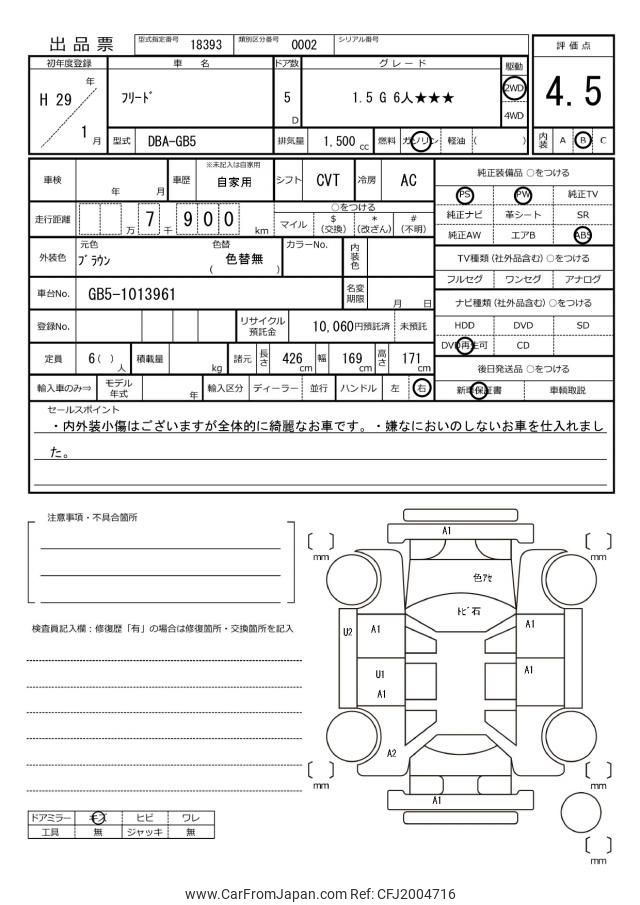 出品票 型式指定番号 18393 類別区分番号 0002 シリアル番号
評価点
4.5
内装 A B C
初年度登録 車名 ドア数 グレード 駆動
H 29 年 / 1 月 フリード 5 D 1.5 G 6人★★★ 2WD
4WD
型式 DBA-GB5 排気量 1,500 cc 燃料 ガソリン 軽油 ( )
車検 年 月 車歴 ※未記入は自家用 自家用 シフト CVT 冷房 AC
走行距離 万 7 千 9 0 0 km ○をつける
マイル $(交換) *(改ざん) #(不明)
外装色 元色 ブラウン 色替 ( 色替無 ) カラーNo. 内装色
車台No. GB5-1013961 名変期限 月 日
登録No. リサイクル預託金 10,060円預託済 未預託
定員 6( )人 積載量 kg 諸元 長さ 426 cm 幅 169 cm 高さ 171 cm
輸入車のみ⇒ モデル年式 年 輸入区分 ディーラー 並行 ハンドル 左 右
純正装備品 ○をつける
PS PW 純正TV
純正ナビ 革シート SR
純正AW エアB ABS
TV種類(社外品含む) ○をつける
フルセグ ワンセグ アナログ
ナビ種類(社外品含む) ○をつける
HDD DVD SD
DVD再生可 CD
後日発送品 ○をつける
新車保証書 車輌取説
セールスポイント
・内外装小傷はございますが全体的に綺麗なお車です。・嫌なにおいのしないお車を仕入れまし
た。
注意事項・不具合箇所
検査員記入欄:修復歴「有」の場合は修復箇所・交換箇所を記入
ドアミラー キズ ヒビ ワレ
工具 無 ジャッキ 無
A1
mm
mm
色アセ
トビ石
U2 A1 A1
U1 A1
A1
A2
mm
mm
A1
mm
www.CarFromJapan.com Ref: CFJ2004716